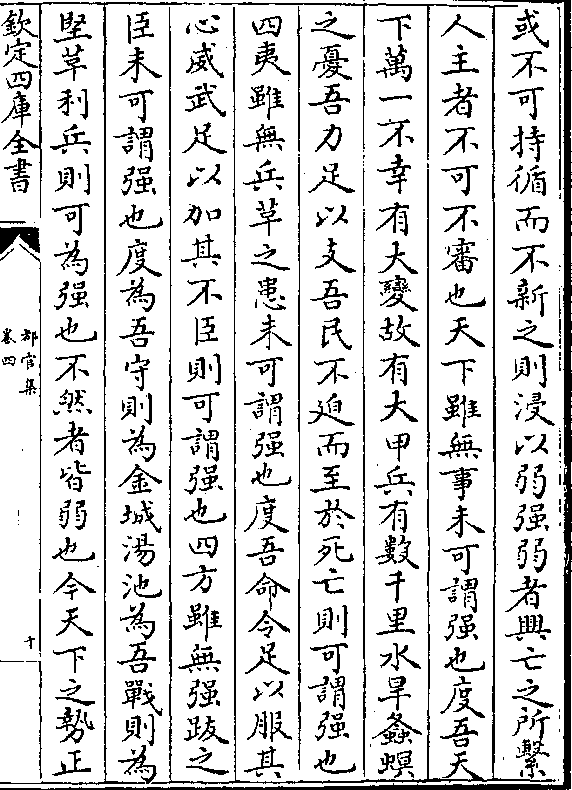 或不可持循而不新之則浸以弱强弱者興亡之所繫
人主者不可不審也天下雖無事未可謂强也度吾天
下萬一不幸有大變故有大甲兵有數千里水旱螽螟
之憂吾力足以支吾民不迫而至於死亡則可謂强也
四夷雖無兵草之患未可謂强也度吾命令足以服其
心威武足以加其不臣則可謂强也四方雖無强跋之
臣未可謂强也度為吾守則為金城湯池為吾戰則為
堅草利兵則可為强也不然者皆弱也今天下之勢正
欽定四庫全書
都官集
卷四
十